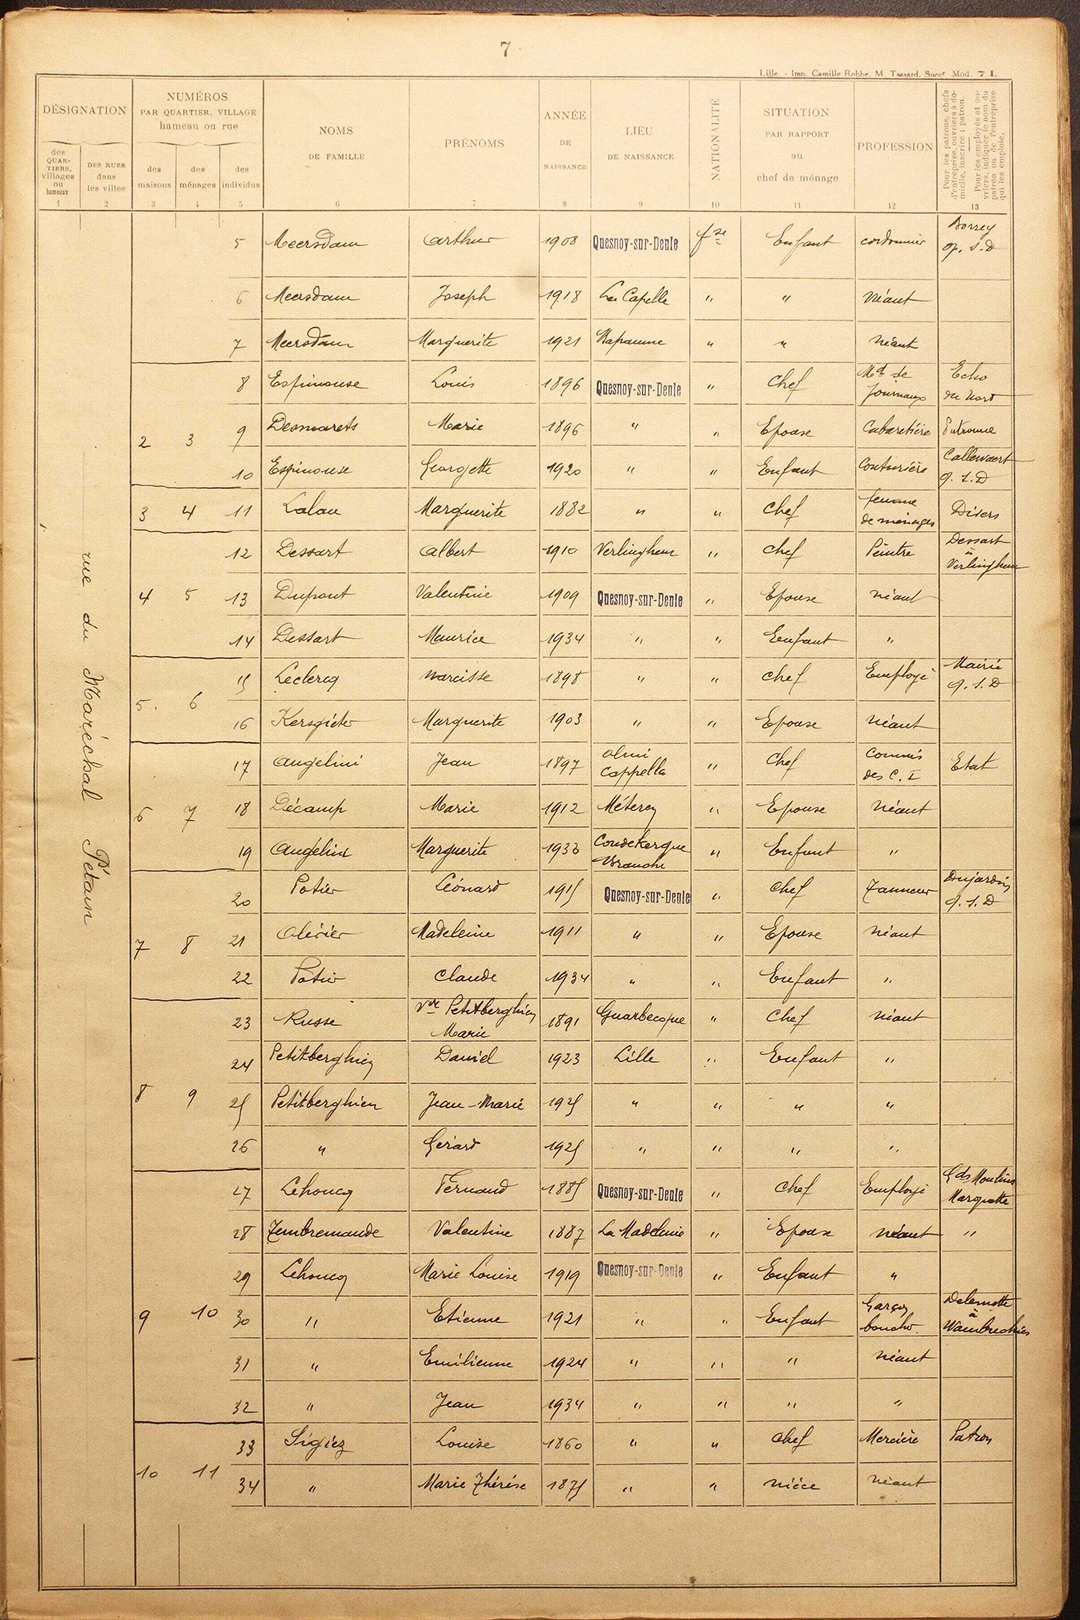 7
Lille. - Imp. Camille Robbe, M. Tassard, Succr Mod. 7 I.
DÉSIGNATION
NUMÉROS
PAR QUARTIER, VILLAGE
hameau ou rue
NOMS
DE FAMILLE
PRÉNOMS
ANNÉE
DE
NAISSANCE
LIEU
DE NAISSANCE
NATIONALITÉ
SITUATION
PAR RAPPORT
au
chef de ménage
PROFESSION
Pour les patrons, chefs
d'entreprise, ouvriers à do-
micile, inscrire : patron.
Pour les employés et ou-
vriers, indiquer le nom du
patron ou de l'entreprise
qui les emploie.
des
QUAR-
TIERS,
villages
ou
hameaux
DES RUES
dans
les villes
des
maisons
des
ménages
des
individus
1 2 3 4 5 6 7 8 9 10 11 12 13
rue du Maréchal Pétain
5 Meersdam Arthur 1908 Quesnoy-sur-Deûle fse Enfant cordonnier
q. s. D
6 Meersdam Joseph 1918 La Capelle " " Néant
7 Meersdam Marguerite 1921 " " Néant
8 Espinouse Louis 1896 Quesnoy-sur-Deûle " Chef Md de journaux Echo du Nord
2 3 9 Desmarets Marie 1896 " " Epouse Cabaretière Patronne
10 Espinouse Georgette 1920 " " Enfant Couturière Callewaert q. s. D
3 4 11 Lalau Marguerite 1882 " " Chef femme de ménages Divers
12 Dessart Albert 1910 Verlinghem " Chef Peintre Dessart à Verlinghem
4 5 13 Dupont Valentine 1909 Quesnoy-sur-Deûle " Epouse néant
14 Dessart Maurice 1934 " " Eenfant "
15 Leclercq Narcisse 1898 " " Chef Employé Mairie q. s. D
5. 6 16 Marguerite 1903 " " Epouse néant
17 Angelini Jean 1897 Olmi Cappella " Chef Commis des C. I Etat
6 7 18 Décamp Marie 1912 Méteren " Epouse Néant
19 Angélini Marguerite 1933 Coudekerque Branche " Enfant "
20 Potier Léonard 1915 Quesnoy-sur-Deûle " Chef Tanneur Dujardin q. s. D
7 8 21 Olivier Madeleine 1911 " " Epouse Néant
22 Potier Claude 1934 " " Enfant "
23 Russe Vve Petitberghien Marie 1891 Guarbecque " Chef néant
24 Petitberghien Daniel 1923 Lille " Enfant "
8 9 25 Petitberghien Jean-Marie 1925 " " " "
26 " Gérard 1925 " " " "
27 Lehoucq Fernand 1885 Quesnoy-sur-Deûle " Chef Employé Gds Moulins Marquette
28 Valentine 1887 La Madeleine " Epouse néant "
29 Lehoucq Marie Louise 1919 Quesnoy-sur-Deûle " Enfant "
9 10 30 " Etienne 1921 " " Enfant Garçon boucher Delemotte à Wambrechies
31 " Emilienne 1924 " " " néant
32 " Jean 1934 " " " "
33 Louise 1860 " " Chef Mercière Patron
10 11 34 " Marie Thérése 1875 " " nièce néant